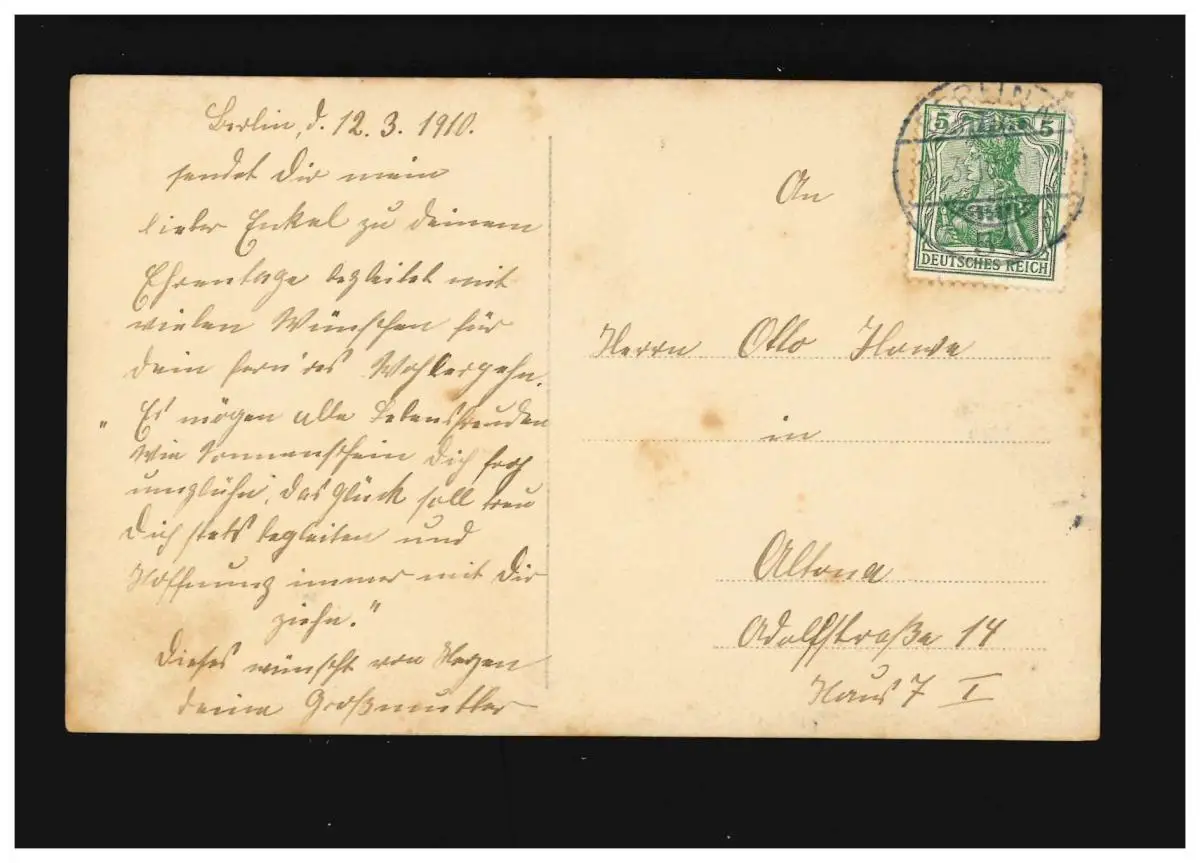 Berlin, d. 12. 3. 1910.
sendet dir mein
lieber Enkel zu deinem
Ehrentage begleitet mit
vielen Wünschen für
dein Wohlergehn.
"Es mögen alle Lebensfreuden
Wie Sonnenschein dich froh
umglühn, das Glück soll treu
dich stets begleiten und
Hoffnung immer mit dir
ziehn."
Dieses wünscht von Herzen
deine Großmutter
BERLIN
5 5
DEUTSCHES REICH
An
Herrn Otto Hawe
in
Altona
Adolfstraße 14
Haus 7 I